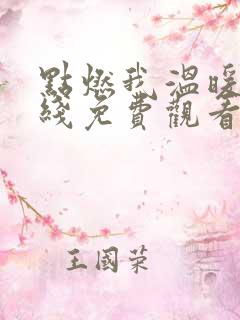 點燃我溫暖
綫免費觀看
王國荣